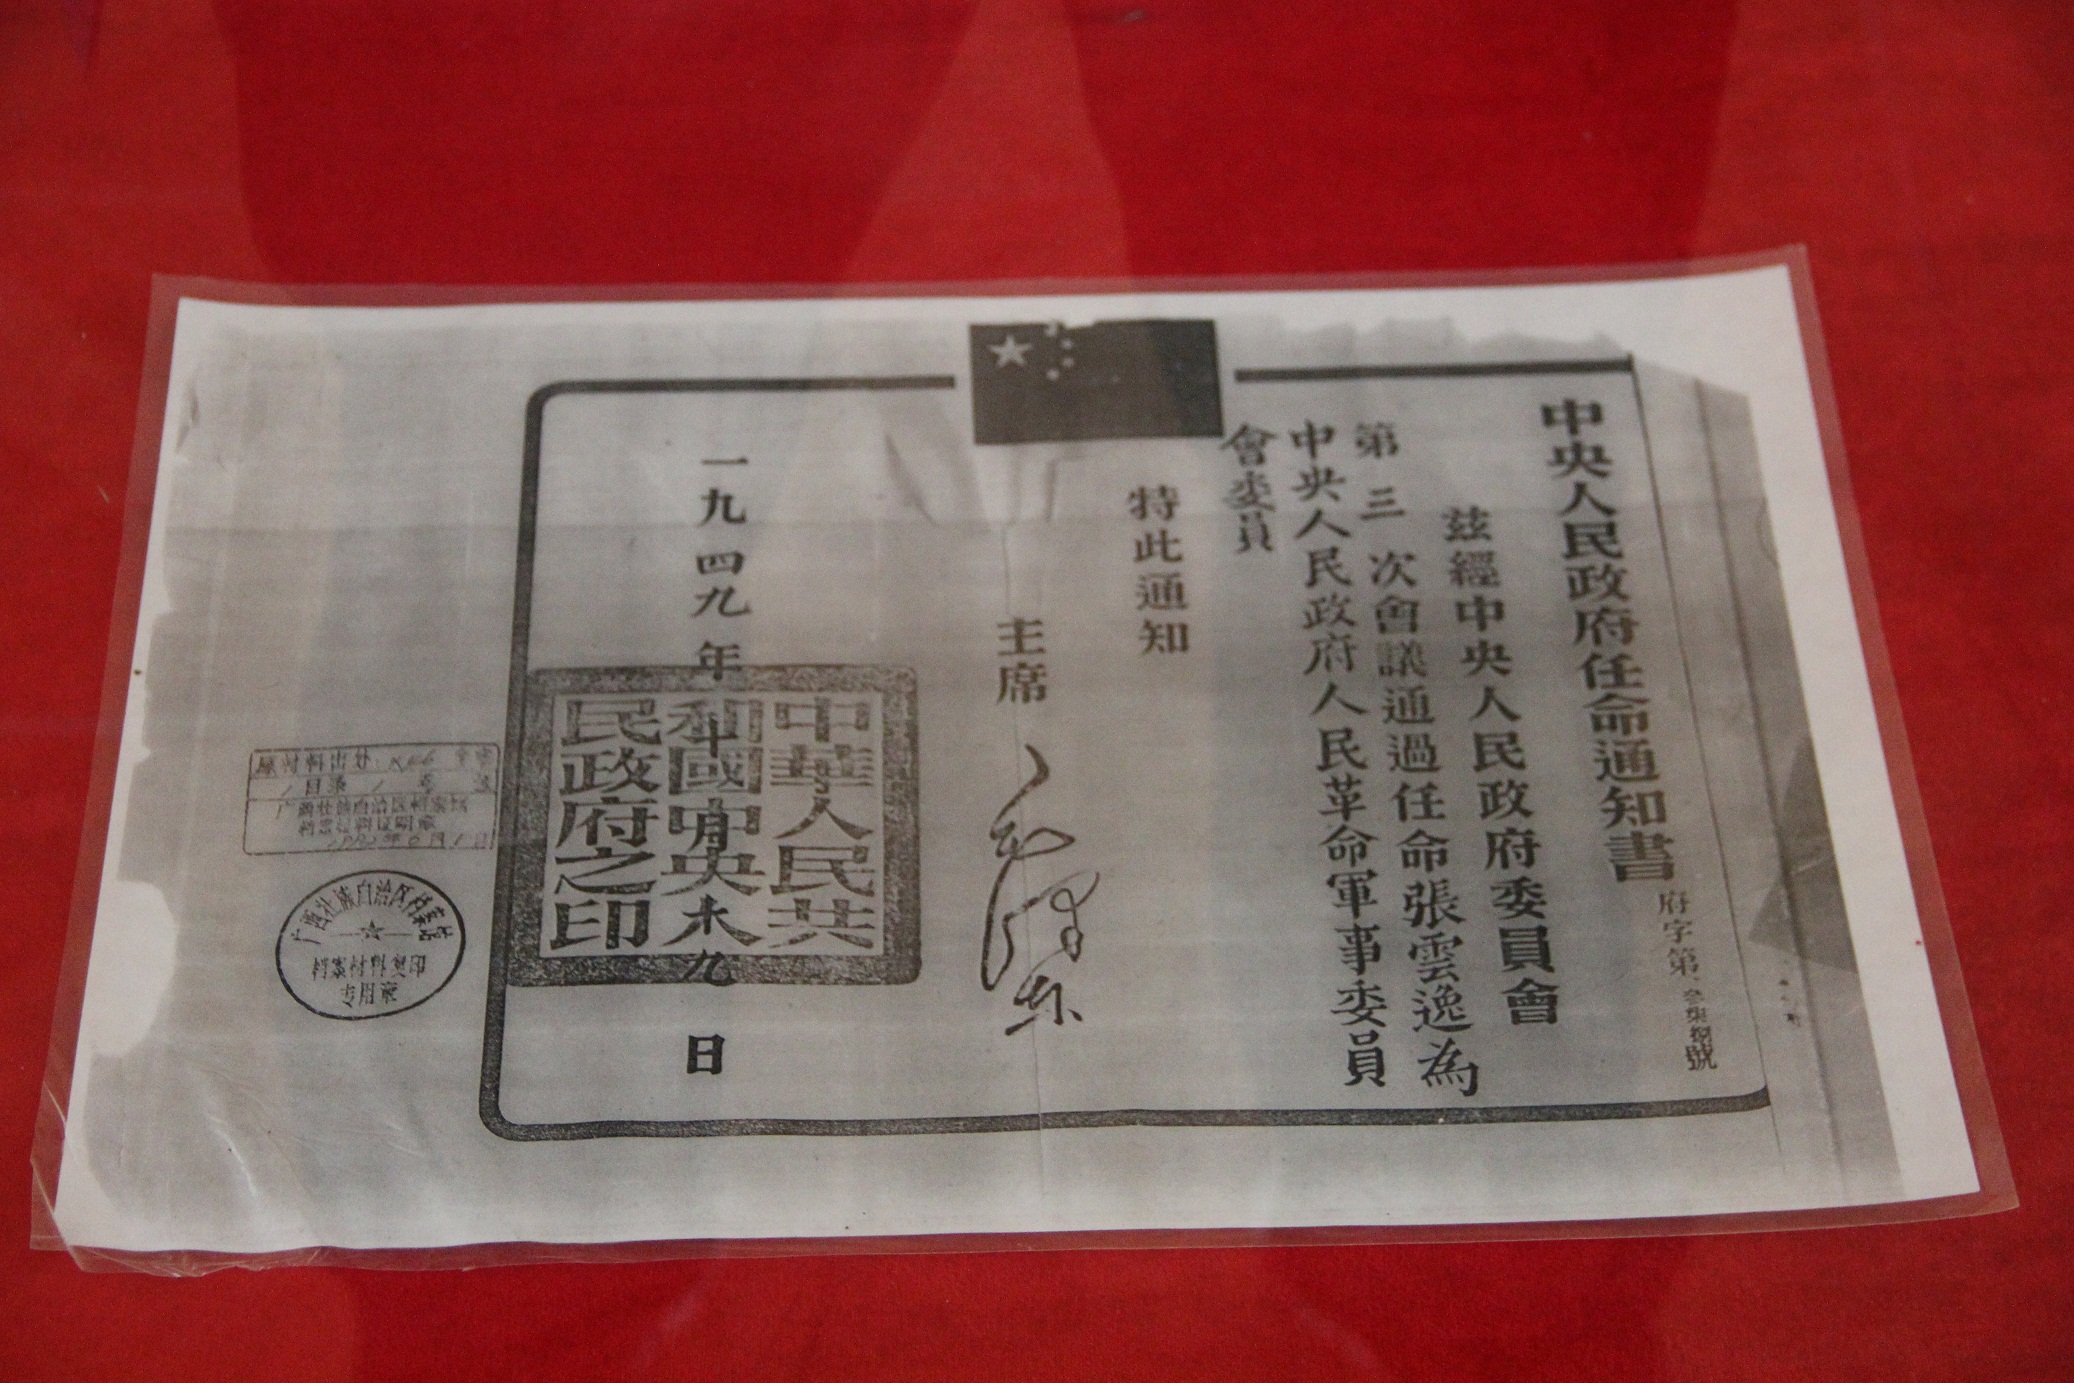 中央人民政府任命通知書
府字第參柒捌號
茲經中央人民政府委員會
第三次會議通過任命張雲逸為
中央人民政府人民革命軍事委員
會委員
特此通知
主席
毛澤東
一九四九年十月十九日
中華人民共
和國中央人
民政府之印
原材料出处
目录
广西壮族自治区档案馆
档案材料证明章
广西壮族自治区档案馆
档案材料复印
专用章